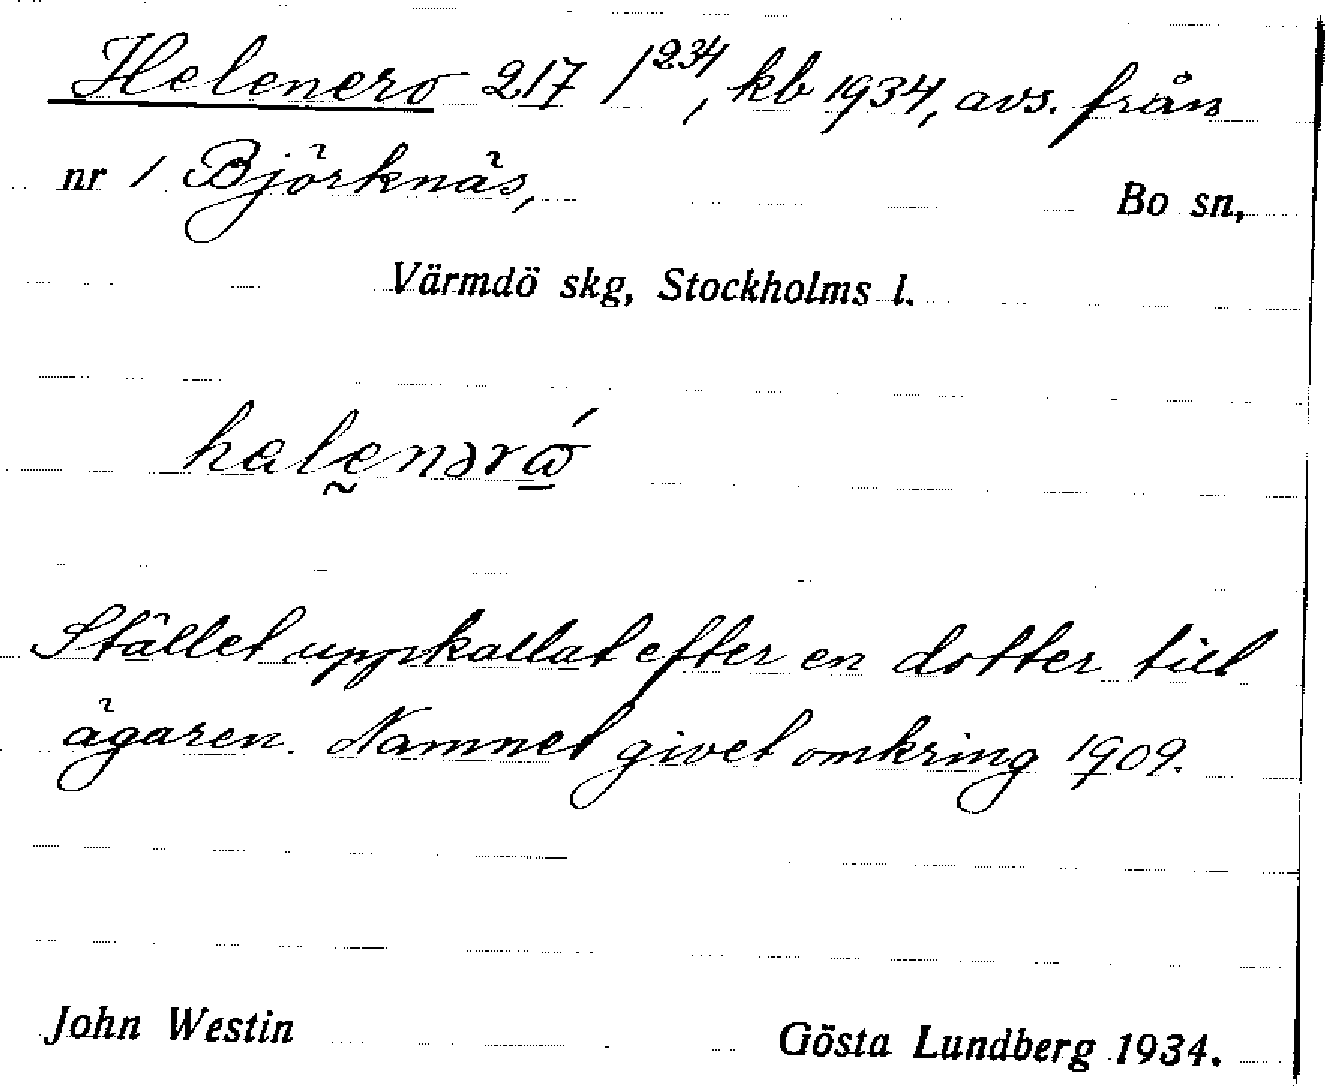 Helenero 217 1²³⁴, kb 1934, avs. från
nr 1 Björknäs, Bo sn,
Värmdö skg, Stockholms l.
Stället uppkallat efter en dotter till
ägaren. Namnet givet omkring 1909.
John Westin Gösta Lundberg 1934.